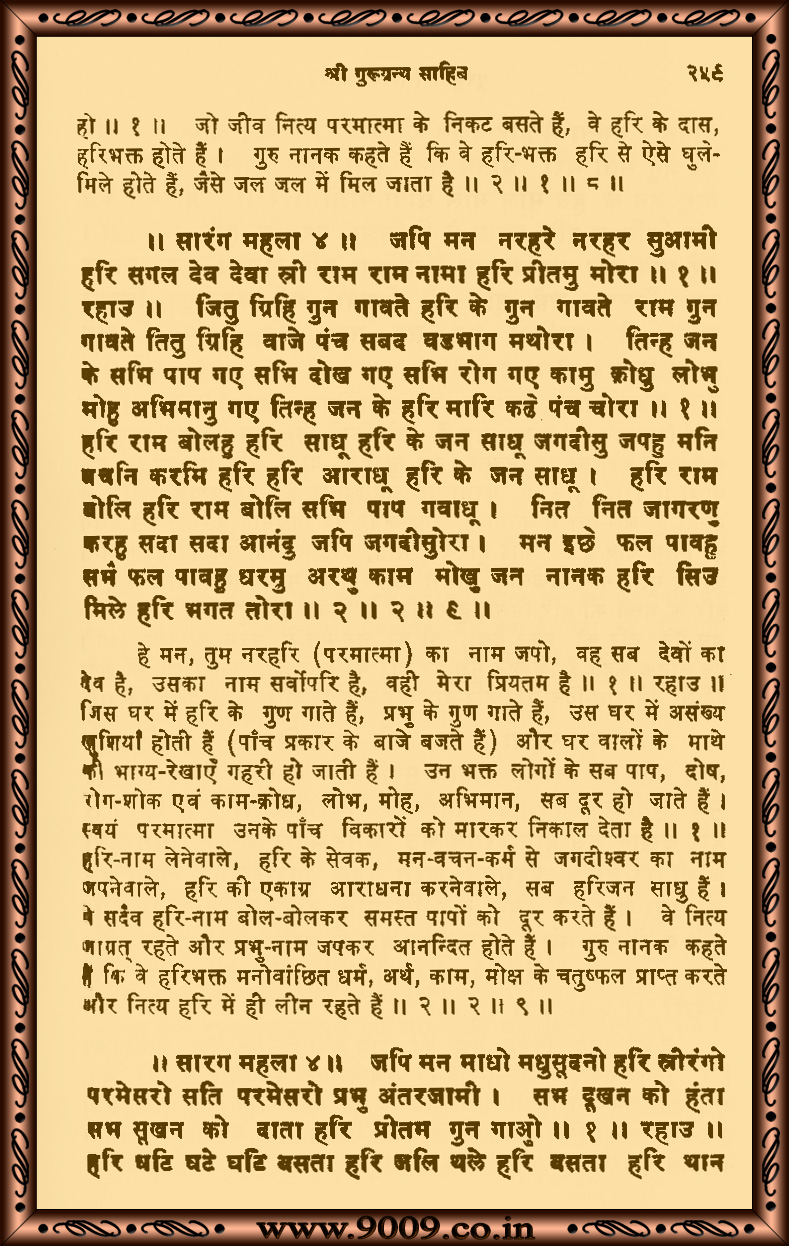 श्री गुरूग्रन्थ साहिब २५९
हो ॥ १ ॥ जो जीव नित्य परमात्मा के निकट बसते हैं, वे हरि के दास,
हरिभक्त होते हैं । गुरु नानक कहते हैं कि वे हरि-भक्त हरि से ऐसे घुले-
मिले होते हैं, जैसे जल जल में मिल जाता है ॥ २ ॥ १ ॥ ८ ॥
॥ सारंग महला ४ ॥ जपि मन नरहरे नरहर सुआमी
हरि सगल देव देवा स्री राम राम नामा हरि प्रीतमु मोरा ॥ १ ॥
रहाउ ॥ जितु ग्रिहि गुन गावते हरि के गुन गावते राम गुन
गावते तितु ग्रिहि वाजे पंच सबद वडभाग मथोरा । तिन्ह जन
के सभि पाप गए सभि दोख गए सभि रोग गए कामु क्रोधु लोभु
मोहु अभिमानु गए तिन्ह जन के हरि मारि कढे पंच चोरा ॥ १ ॥
हरि राम बोलहु हरि साधू हरि के जन साधू जगदीसु जपहु मनि
बचनि करमि हरि हरि आराधू हरि के जन साधू । हरि राम
बोलि हरि राम बोलि सभि पाप गवाधू । नित नित जागरणु
करहु सदा सदा आनंदु जपि जगदीसोुरा । मन इछे फल पावहु
सभै फल पावहु धरमु अरथु काम मोखु जन नानक हरि सिउ
मिले हरि भगत तोरा ॥ २ ॥ २ ॥ ९ ॥
हे मन, तुम नरहरि (परमात्मा) का नाम जपो, वह सब देवों का
देव है, उसका नाम सर्वोपरि है, वही मेरा प्रियतम है ॥ १ ॥ रहाउ ॥
जिस घर में हरि के गुण गाते हैं, प्रभु के गुण गाते हैं, उस घर में असंख्य
खुशियाँ होती हैं (पाँच प्रकार के बाजे बजते हैं) और घर वालों के माथे
की भाग्य-रेखाएँ गहरी हो जाती हैं । उन भक्त लोगों के सब पाप, दोष,
रोग-शोक एवं काम-क्रोध, लोभ, मोह, अभिमान, सब दूर हो जाते हैं ।
स्वयं परमात्मा उनके पाँच विकारों को मारकर निकाल देता है ॥ १ ॥
हरि-नाम लेनेवाले, हरि के सेवक, मन-वचन-कर्म से जगदीश्वर का नाम
जपनेवाले, हरि की एकाग्र आराधना करनेवाले, सब हरिजन साधु हैं ।
वे सदैव हरि-नाम बोल-बोलकर समस्त पापों को दूर करते हैं । वे नित्य
जाग्रत् रहते और प्रभु-नाम जपकर आनन्दित होते हैं । गुरु नानक कहते
हैं कि वे हरिभक्त मनोवांछित धर्म, अर्थ, काम, मोक्ष के चतुष्फल प्राप्त करते
और नित्य हरि में ही लीन रहते हैं ॥ २ ॥ २ ॥ ९ ॥
॥ सारग महला ४ ॥ जपि मन माधो मधुसूदनो हरि स्रीरंगो
परमेसरो सति परमेसरो प्रभु अंतरजामी । सभ दूखन को हंता
सभ सूखन को दाता हरि प्रीतम गुन गाओु ॥ १ ॥ रहाउ ॥
हरि घटि घटे घटि बसता हरि जलि थले हरि बसता हरि थान
www.9009.co.in